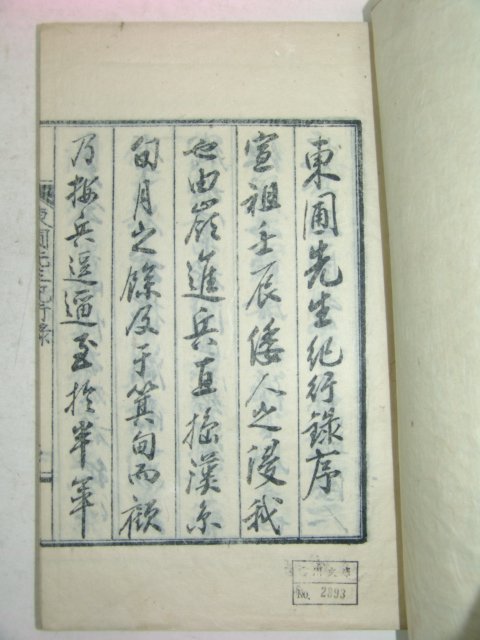 東圃先生紀行錄序
宣祖壬辰倭人之侵我
也由嶺進兵直搗漢京
旬月之餘及于箕甸而顧
乃按兵逗遛至於半年
東圃先生紀行錄
No. 2893